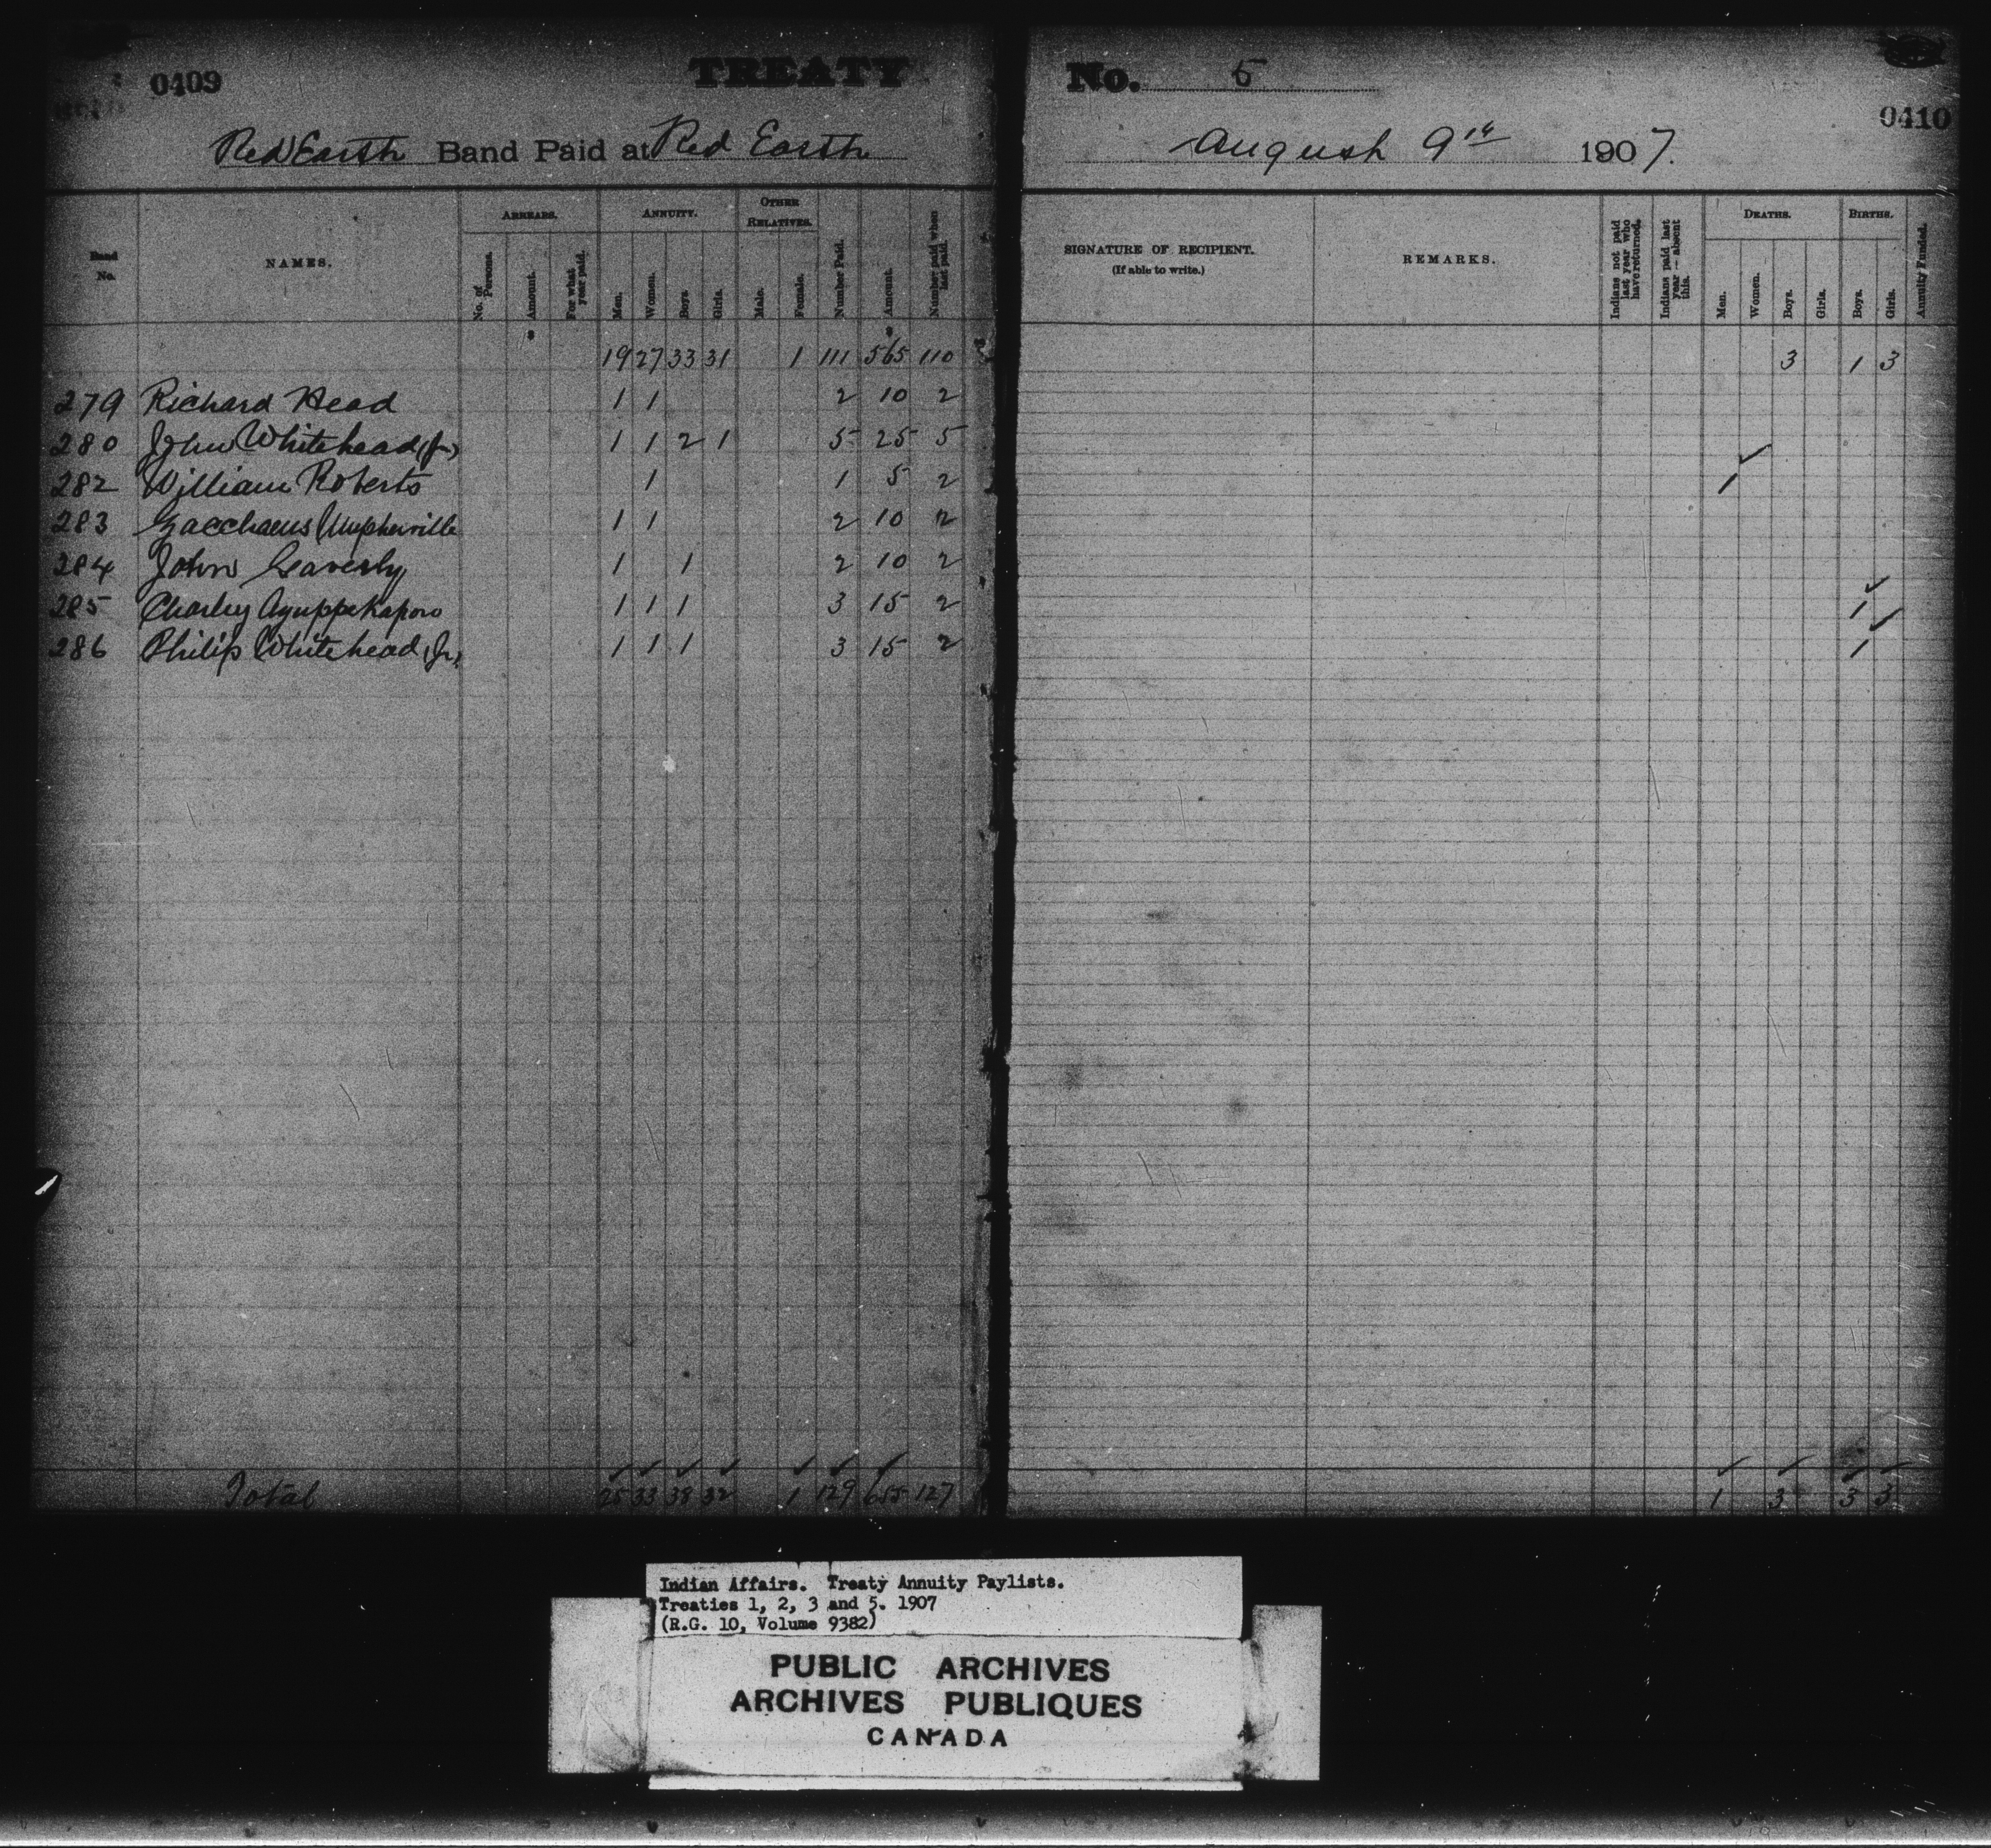 0409 TREATY No. 5 0410
Red Earth Band Paid at Red Earth August 9th 1907.
Band No. NAMES. ARREARS. No. of Persons. Amount. For what year paid. ANNUITY. Men. Women. Boys. Girls. OTHER RELATIVES. Male. Female. Number Paid. Amount. Number paid when last paid. SIGNATURE OF RECIPIENT. (If able to write.) REMARKS. Indians not paid last year who have returned. Indians paid last year - absent this. DEATHS. Men. Women. Boys. Girls. BIRTHS. Boys. Girls. Annuity Funded.
19 27 33 31 1 111 565 110 3 1 3
279 Richard Head 1 1 2 10 2
280 John Whitehead (Jr) 1 1 2 1 5 25 5
282 William Roberts 1 1 5 2 1
283 Zacchaeus Umpherville 1 1 2 10 2
284 John Gaverly 1 1 2 10 2
285 Charley Ayuppekapow 1 1 1 3 15 2 1
286 Philip Whitehead (Jr) 1 1 1 3 15 2 1
Total 25 33 38 32 1 129 655 127 1 3 3 3
Indian Affairs. Treaty Annuity Paylists.
Treaties 1, 2, 3 and 5. 1907
(R.G. 10, Volume 9382)
PUBLIC ARCHIVES
ARCHIVES PUBLIQUES
CANADA